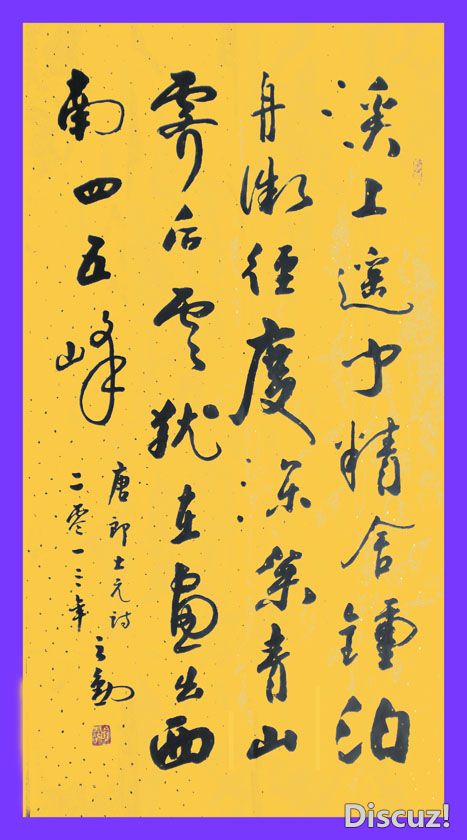 溪上遥闻精舍鍾泊
舟微徑度深松青山
霁后雲犹在畫出西
南四五峰
唐郎士元诗
二零一三年
Discuz!